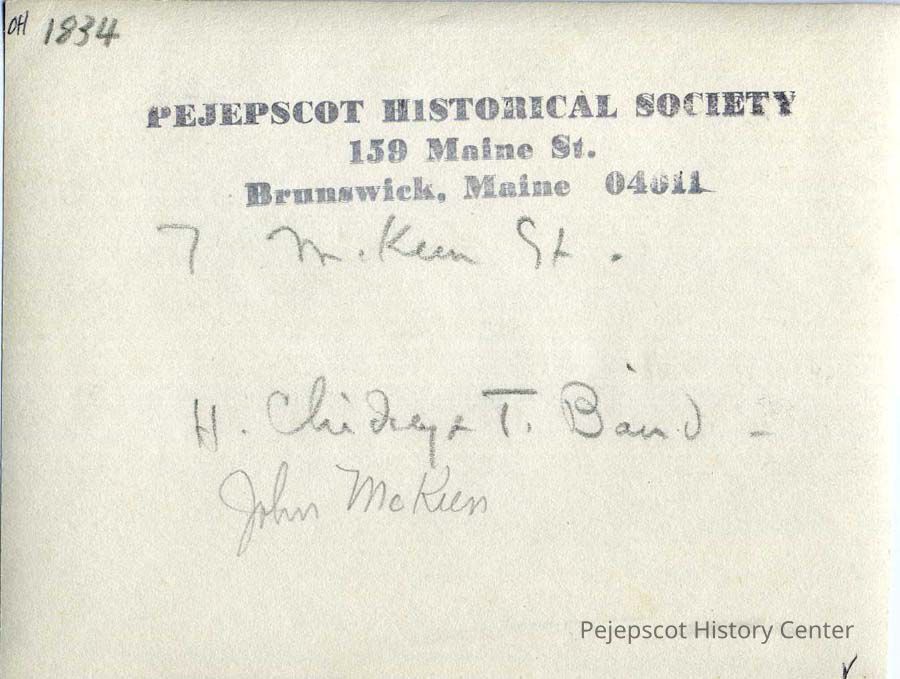 OH 1834
PEJEPSCOT HISTORICAL SOCIETY
159 Maine St.
Brunswick, Maine 04011
7 McKeen St.
H. Chidsey & T. Baird -
John McKeen
Pejepscot History Center